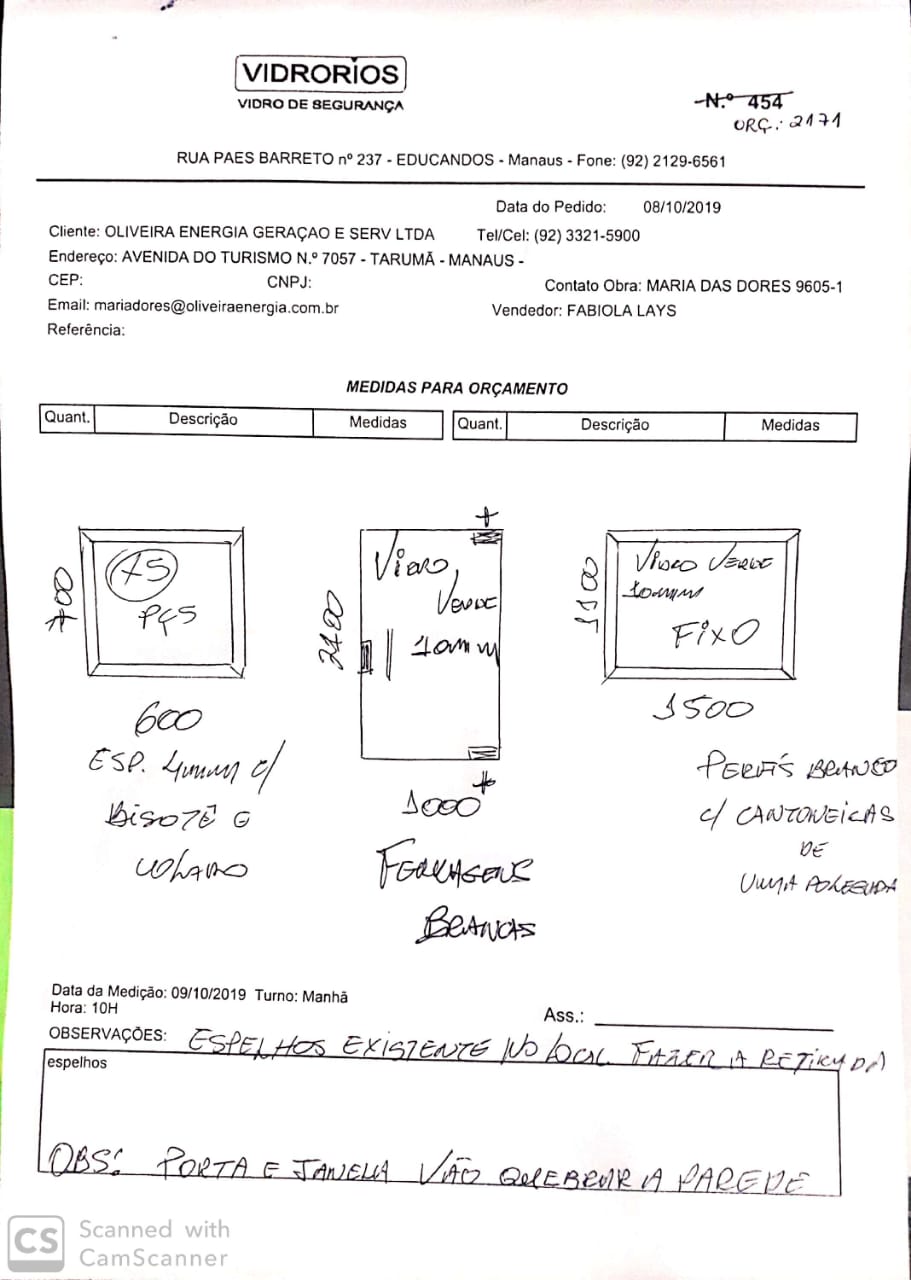 VIDRORIOS
VIDRO DE SEGURANÇA
N.º 454
ORÇ.: 2171
RUA PAES BARRETO nº 237 - EDUCANDOS - Manaus - Fone: (92) 2129-6561
Data do Pedido: 08/10/2019
Cliente: OLIVEIRA ENERGIA GERAÇAO E SERV LTDA Tel/Cel: (92) 3321-5900
Endereço: AVENIDA DO TURISMO N.º 7057 - TARUMÃ - MANAUS -
CEP: CNPJ: Contato Obra: MARIA DAS DORES 9605-1
Email: mariadores@oliveiraenergia.com.br Vendedor: FABIOLA LAYS
Referência:
MEDIDAS PARA ORÇAMENTO
Quant. Descrição Medidas Quant. Descrição Medidas
700
PÇS
600
ESP. 4mm c/
BISOTÊ E
COLADO
2100
VIDRO
VERDE
10mm
1000
FERRAGENS
BRANCAS
1100
VIDRO VERDE
10mm
FIXO
1500
PERFIS BRANCO
c/ CANTONEIRAS
DE
UMA POLEGADA
Data da Medição: 09/10/2019 Turno: Manhã
Hora: 10H
Ass.:
OBSERVAÇÕES: ESPELHOS EXISTENTE NO LOCAL FAZER A RETIRADA
espelhos
OBS: PORTA E JANELA VÃO QUEBRAR A PAREDE
CS Scanned with
CamScanner